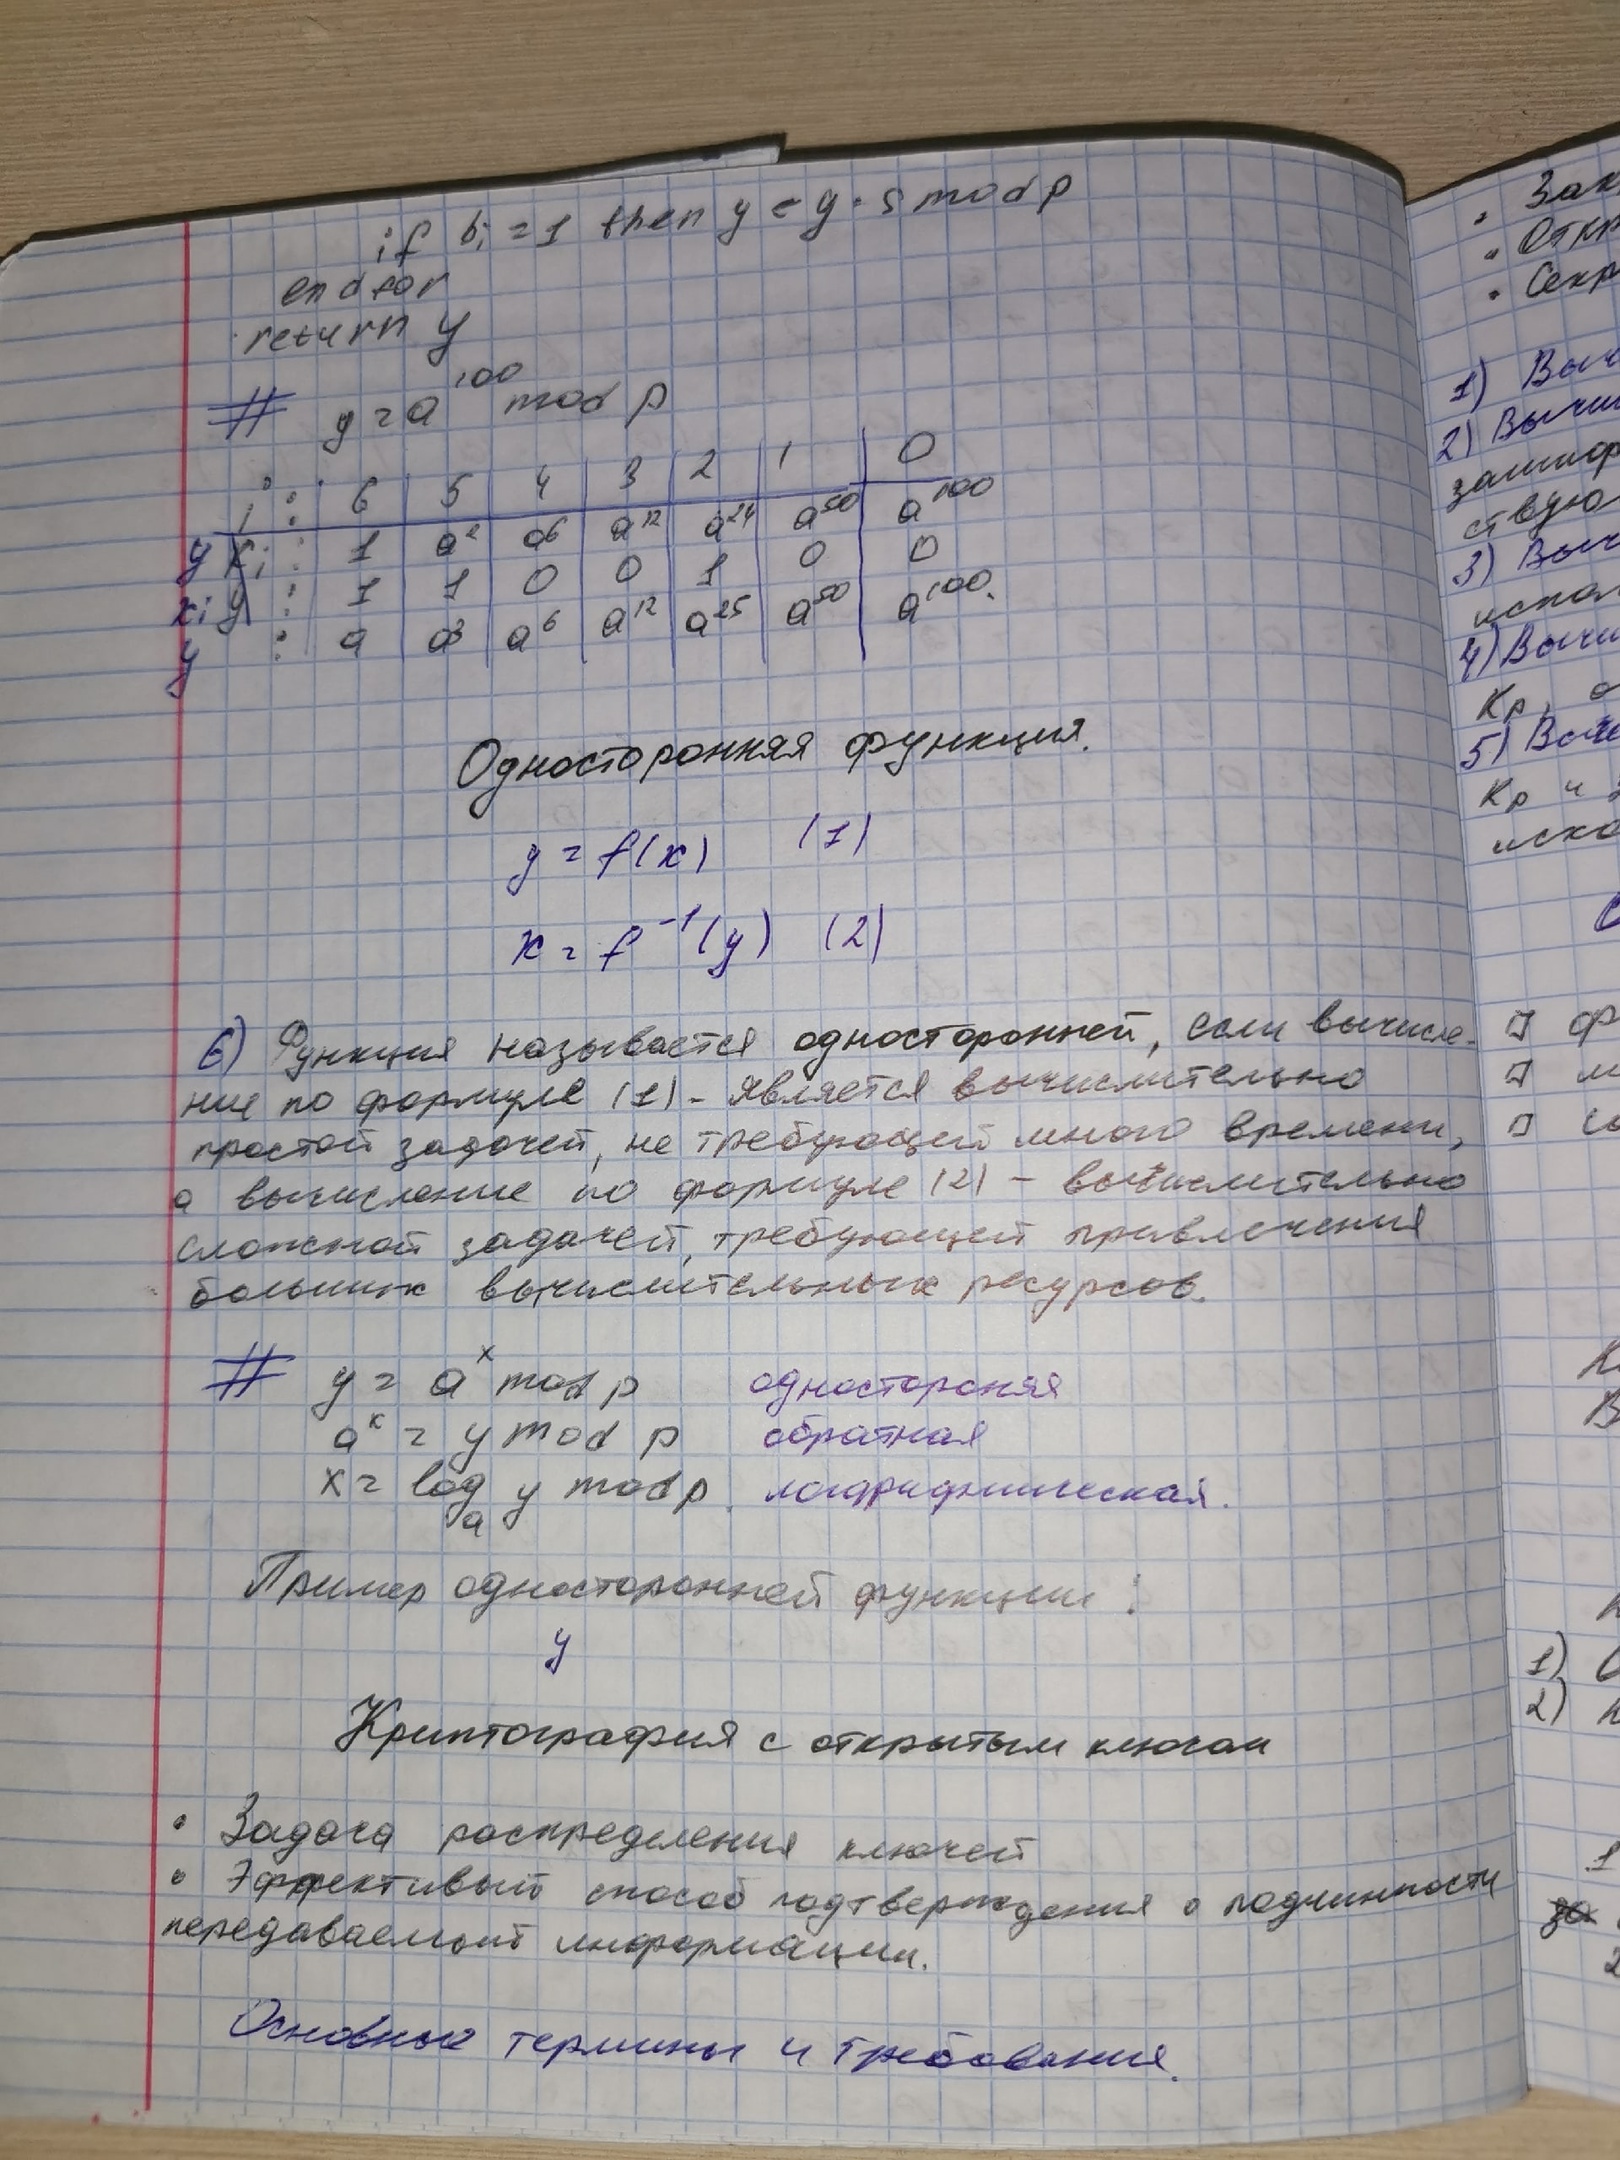 if bᵢ = 1 then y = y · s mod p
endfor
return y
# y = a¹⁰⁰ mod p
i : 6 5 4 3 2 1 0
y : 1 a² a⁶ a¹² a²⁴ a⁵⁰ a¹⁰⁰
xᵢ : 1 1 0 0 1 0 0
y : a a³ a⁶ a¹² a²⁵ a⁵⁰ a¹⁰⁰.
Односторонняя функция.
y = f(x) (1)
x = f⁻¹(y) (2)
6) Функция называется односторонней, если вычисле-
ние по формуле (1) - является вычислительно
простой задачей, не требующей много времени,
а вычисление по формуле (2) - вычислительно
сложной задачей, требующей привлечения
больших вычислительных ресурсов.
# y = aˣ mod p одностороняя
aˣ = y mod p обратная
x = logₐ y mod p. логарифмическая.
Пример односторонней функции :
y
Криптография с открытым ключом
• Задача распределения ключей
• Эффективый способ подтверждения о подчинности
передаваемой информации.
Основные термины и требования.
• Зак
• Откр
• Секр
1) Выч
2) Вычи
ствую
3) Выч
испол
4) Вычи
Kp,
5) Выч
Kp и
исхо
1)
2)